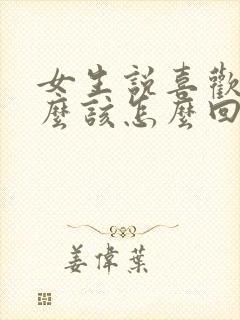 女生說喜歡
麼該怎麼回
姜偉葉